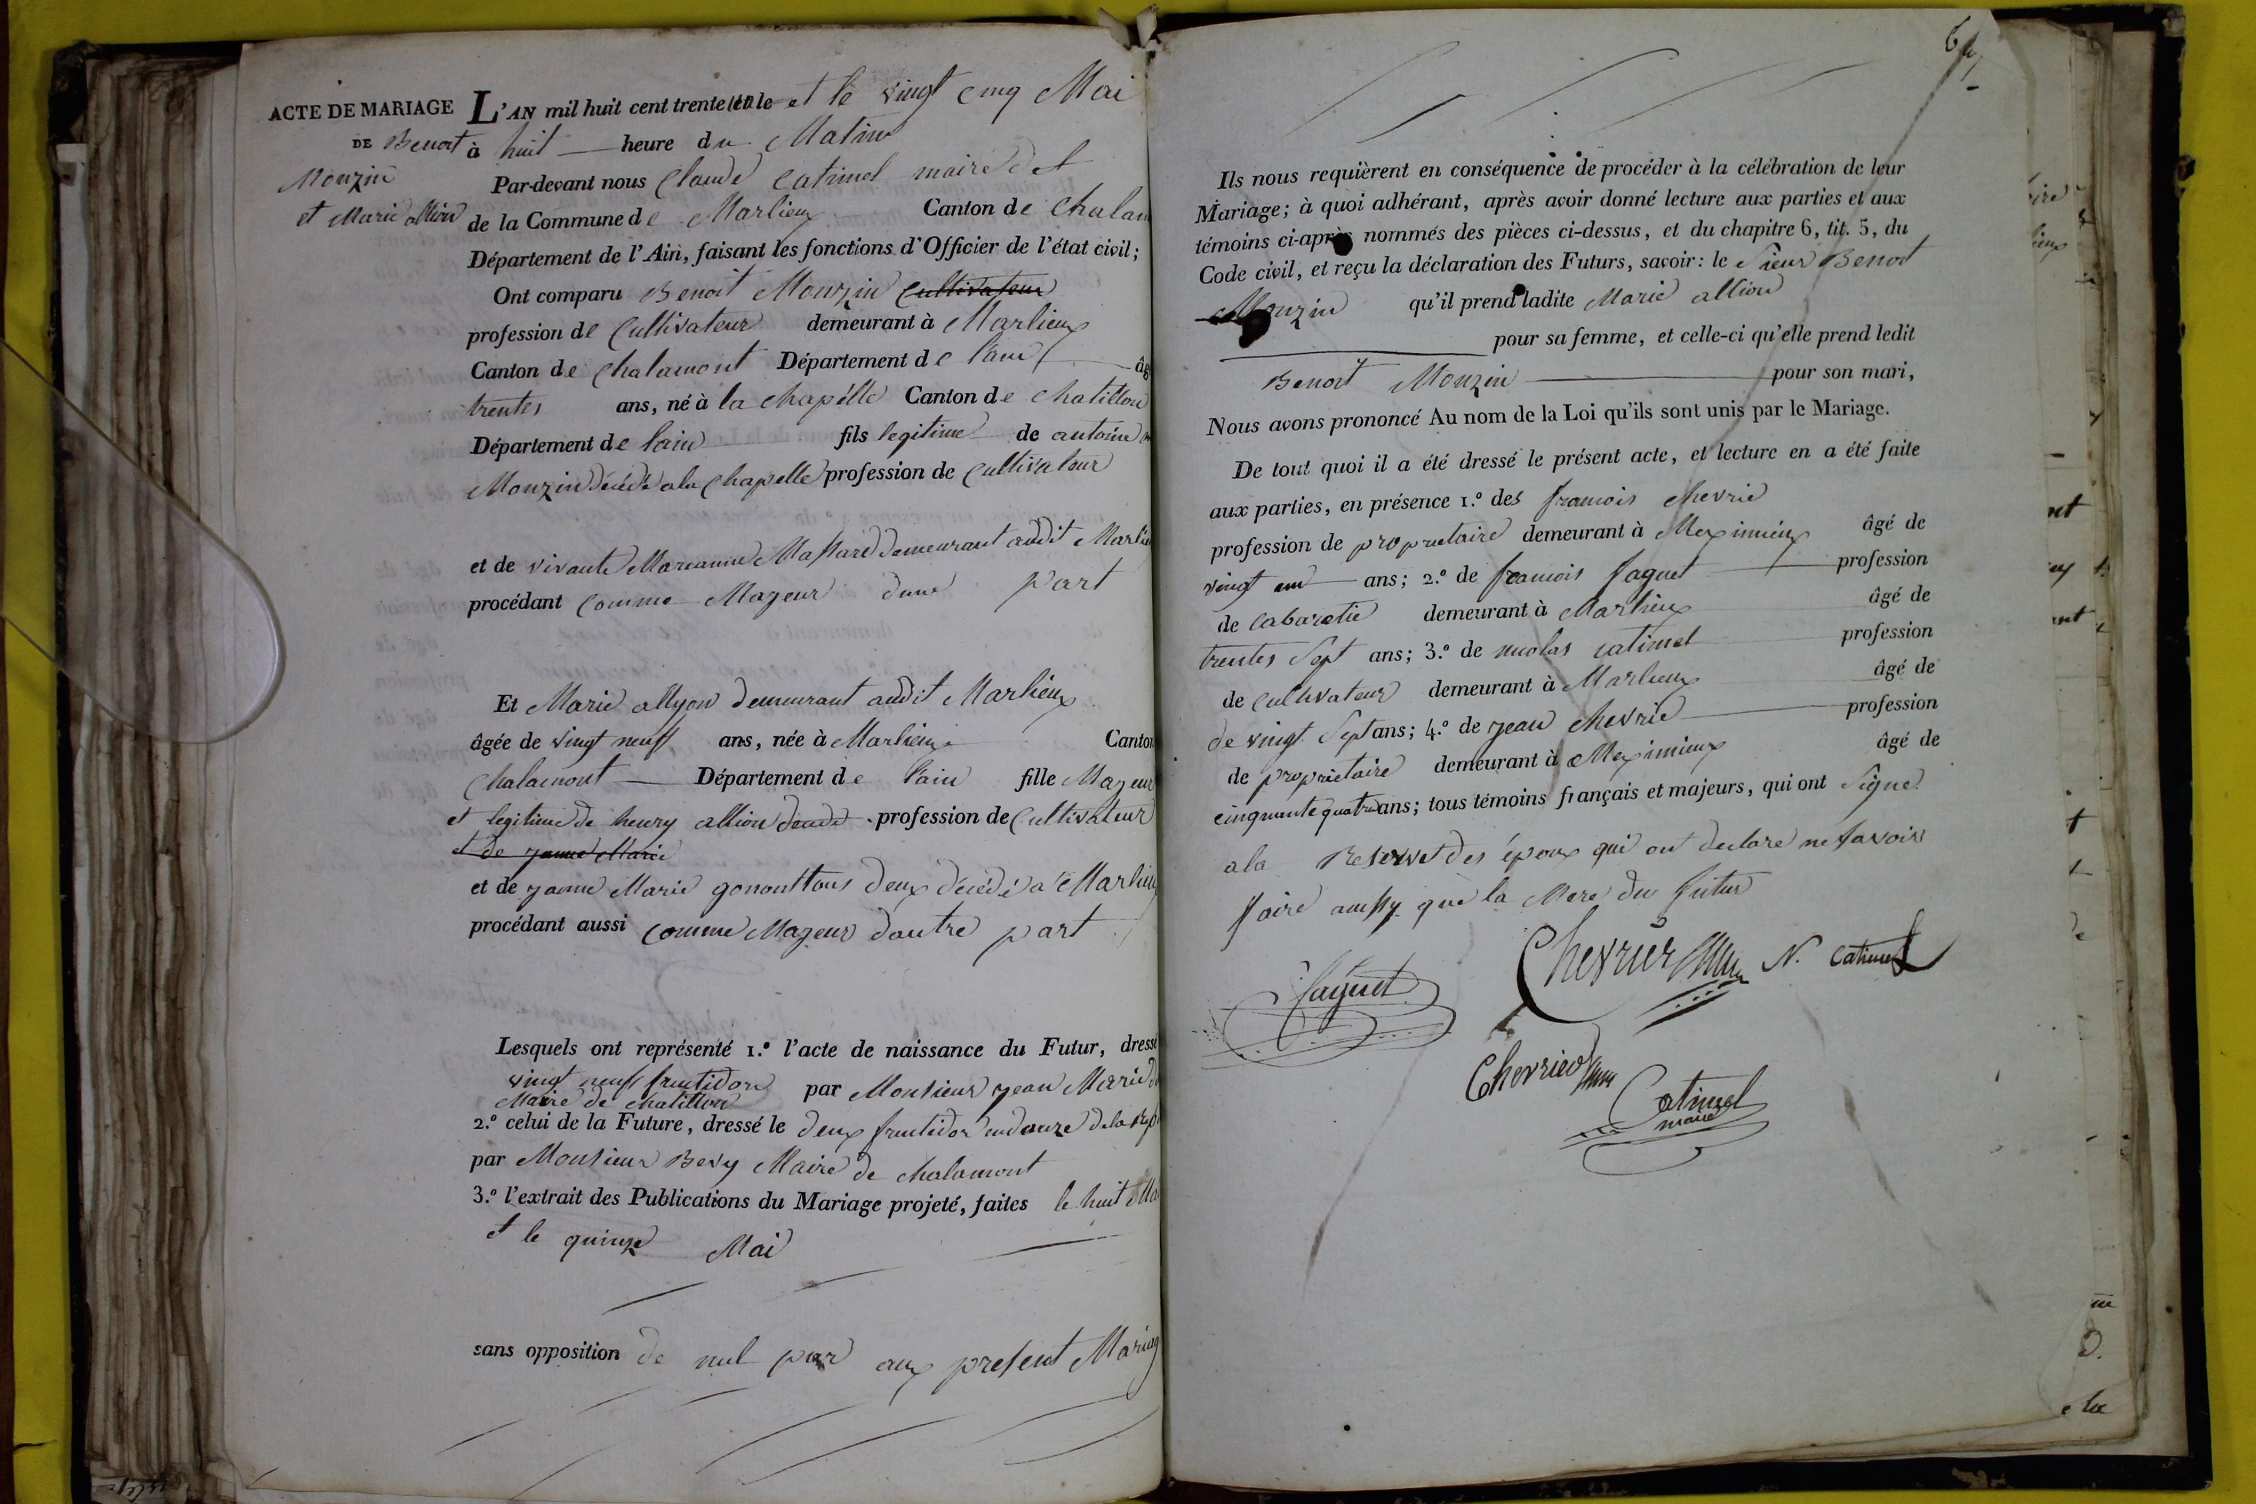 ACTE DE MARIAGE
DE Benoit
Monzin
et Marie allion
L'AN mil huit cent trente et le vingt cinq Mai
à huit heure du Matin
Par-devant nous Claude Catimel maire
de la Commune de Marlieux Canton de Chalam
Département de l'Ain, faisant les fonctions d'Officier de l'état civil;
Ont comparu Benoit Monzin Cultivateur
profession de Cultivateur demeurant à Marlieux
Canton de Chalamont Département de l'ain âg
trentes ans, né à la chapelle Canton de Chatillon
Département de lain fils legitime de antoine
Monzin décédé a la Chapelle profession de Cultivateur
et de vivante Marianne Massard demeurant audit Marlieu
procédant Comme Mageur dune part
Et Marie allyon demeurant audit Marlieux
âgée de vingt neuf ans, née à Marlieux Canton
Chalamont Département de l'ain fille Mageur
et legitime de henry allion profession de Cultivateur
et de janne Marie
et de janne Marie gonont tous deux décédé a Marlieu
procédant aussi comme Mageur dautre part
Lesquels ont représenté 1.º l'acte de naissance du Futur, dressé
vingt neuf fructidor par Monsieur jean Marie
Maire de chatillon
2.º celui de la Future, dressé le deux fructidor an onze de la rep
par Monsieur Bevy Maire de chalamont
3.º l'extrait des Publications du Mariage projeté, faites le huit Ma
et le quinze Mai
sans opposition de nul par aux present Mariag
64
Ils nous requièrent en conséquence de procéder à la célébration de leur
Mariage; à quoi adhérant, après avoir donné lecture aux parties et aux
témoins ci-après nommés des pièces ci-dessus, et du chapitre 6, tit. 5, du
Code civil, et reçu la déclaration des Futurs, savoir: le Sieur Benoit
Monzin qu'il prend ladite Marie allion
pour sa femme, et celle-ci qu'elle prend ledit
Benoit Monzin pour son mari,
Nous avons prononcé Au nom de la Loi qu'ils sont unis par le Mariage.
De tout quoi il a été dressé le présent acte, et lecture en a été faite
aux parties, en présence 1.º des francois chevrié
profession de proprietaire demeurant à Meximieux âgé de
vingt un ans; 2.º de francois faguet profession
de Cabaretie demeurant à Marlieux âgé de
trentes Sept ans; 3.º de nicolas catimel profession
de Cultivateur demeurant à Marlieux âgé de
de vingt Sept ans; 4.º de jean chevrié profession
de proprietaire demeurant à Meximieux âgé de
cinquante quatre ans; tous témoins français et majeurs, qui ont Signé
a la Reserve des époux qui ont declare ne savoir
faire aussy que la Mere du futur
Chevrier N. Catimel
faguet
Chevrier
Catimel
maire